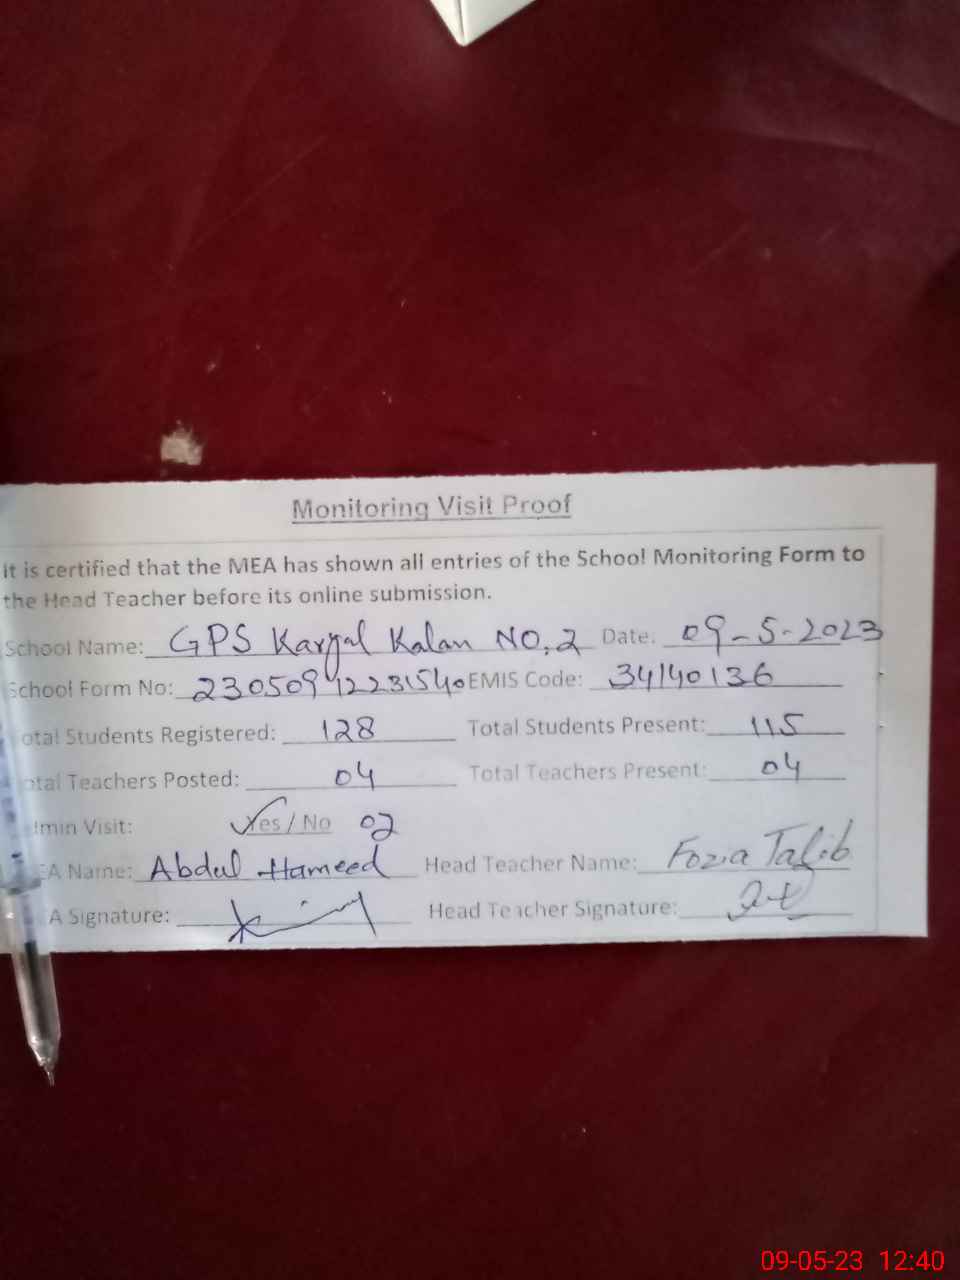 Monitoring Visit Proof
It is certified that the MEA has shown all entries of the School Monitoring Form to
the Head Teacher before its online submission.
School Name: GPS Karyal Kalan NO, 2 Date: 09-5-2023
School Form No: 230509122231540 EMIS Code: 34140136
otal Students Registered: 128 Total Students Present: 115
otal Teachers Posted: 04 Total Teachers Present: 04
dmin Visit: Yes / No 02
EA Name: Abdul Hameed Head Teacher Name: Fozia Talib
A Signature: Head Teacher Signature:
09-05-23 12:40